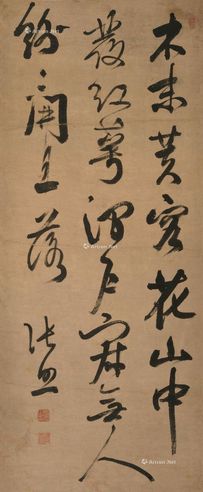 木末芙容花山中
發紅萼澗戶寂無人
紛〻開且落
張照
Artron.Net